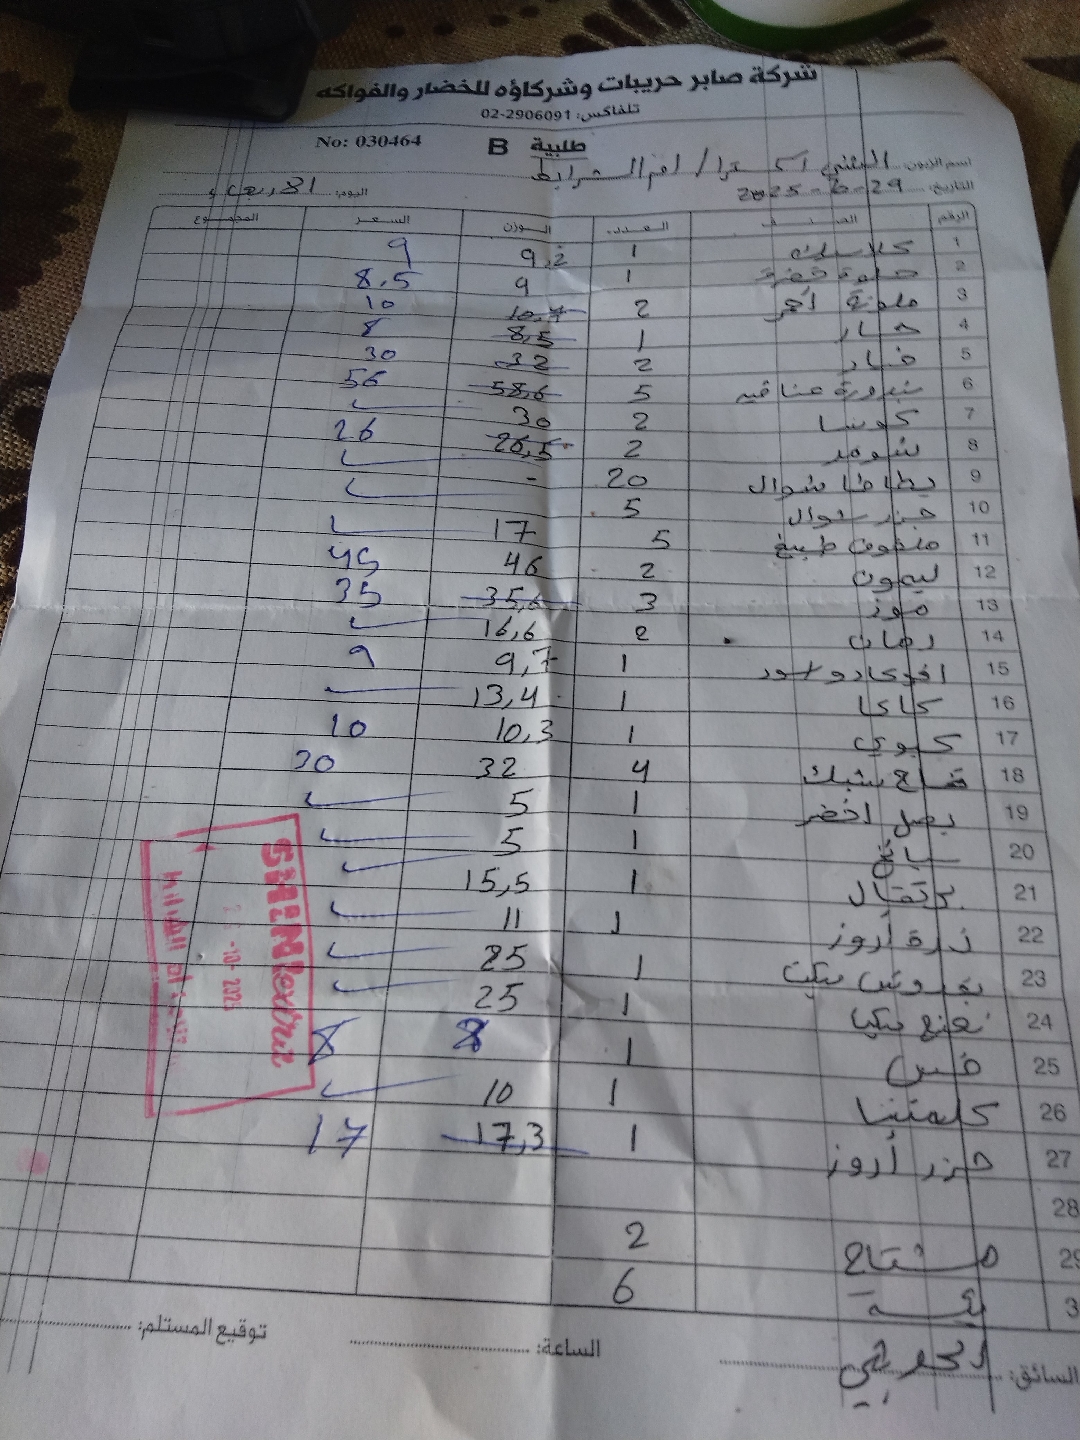 شركة صابر حريبات وشركاؤه للخضار والفواكه
تلفاكس: 02-2906091
طلبية B No: 030464
اسم الزبون: الشني اكسترا / ام الشرايط
التاريخ: 29-6-2025 اليوم: الاربعاء
الرقم الصنف العدد الوزن السعر المجموع
1 كلاسيك 1 9,2 9
2 حلوة خضرة 1 9 8,5
3 ملونة احمر 2 10,7 10
4 حار 1 8,5 8
5 خيار 2 32 30
6 بندورة عناقيد 5 58,6 56
7 كوسا 2 30
8 شومر 2 26,5 26
9 بطاطا شوال 20 -
10 جزر شوال 5
11 ملفوف طبيخ 5 17
12 ليمون 2 46 45
13 موز 3 35,6 35
14 رمان 2 16,6
15 افوكادو اسود 1 9,7 9
16 كاكا 1 13,4
17 كيوي 1 10,3 10
18 تفاح شبك 4 32 30
19 بصل اخضر 1 5
20 سبانخ 1 5
21 برتقال 1 15,5
22 ذرة أروز 1 11
23 بقدونس بيكيت 1 25
24 نعنع 1 25
25 خس 1 8 8
26 كلمنتينا 1 10
27 جزر أروز 1 17,3 17
28
29 مشتاح 2
3 بكسة 6
SHINI extra
-10- 202
السائق: الساعة: توقيع المستلم: